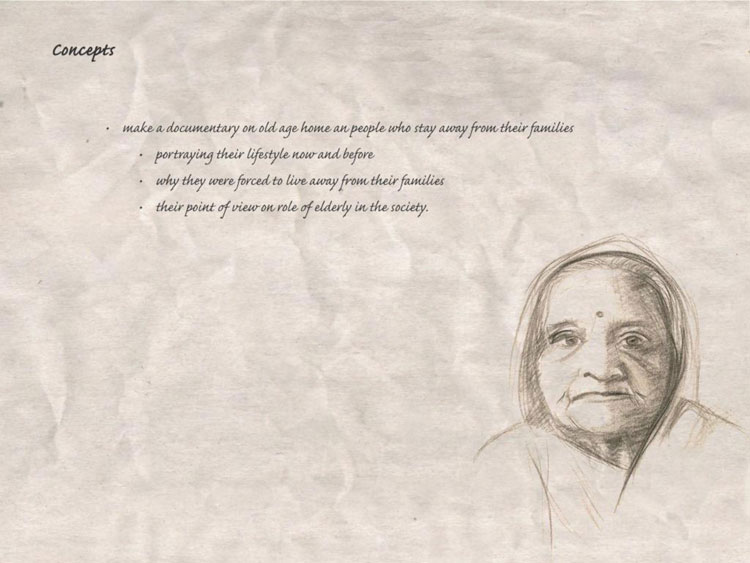 Concepts
• make a documentary on old age home an people who stay away from their families
• portraying their lifestyle now and before
• why they were forced to live away from their families
• their point of view on role of elderly in the society.